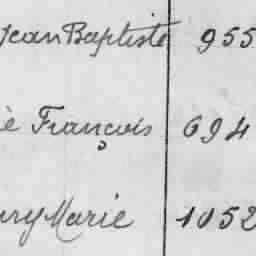 Jean Baptiste 955
è François 694
ury Marie 1052